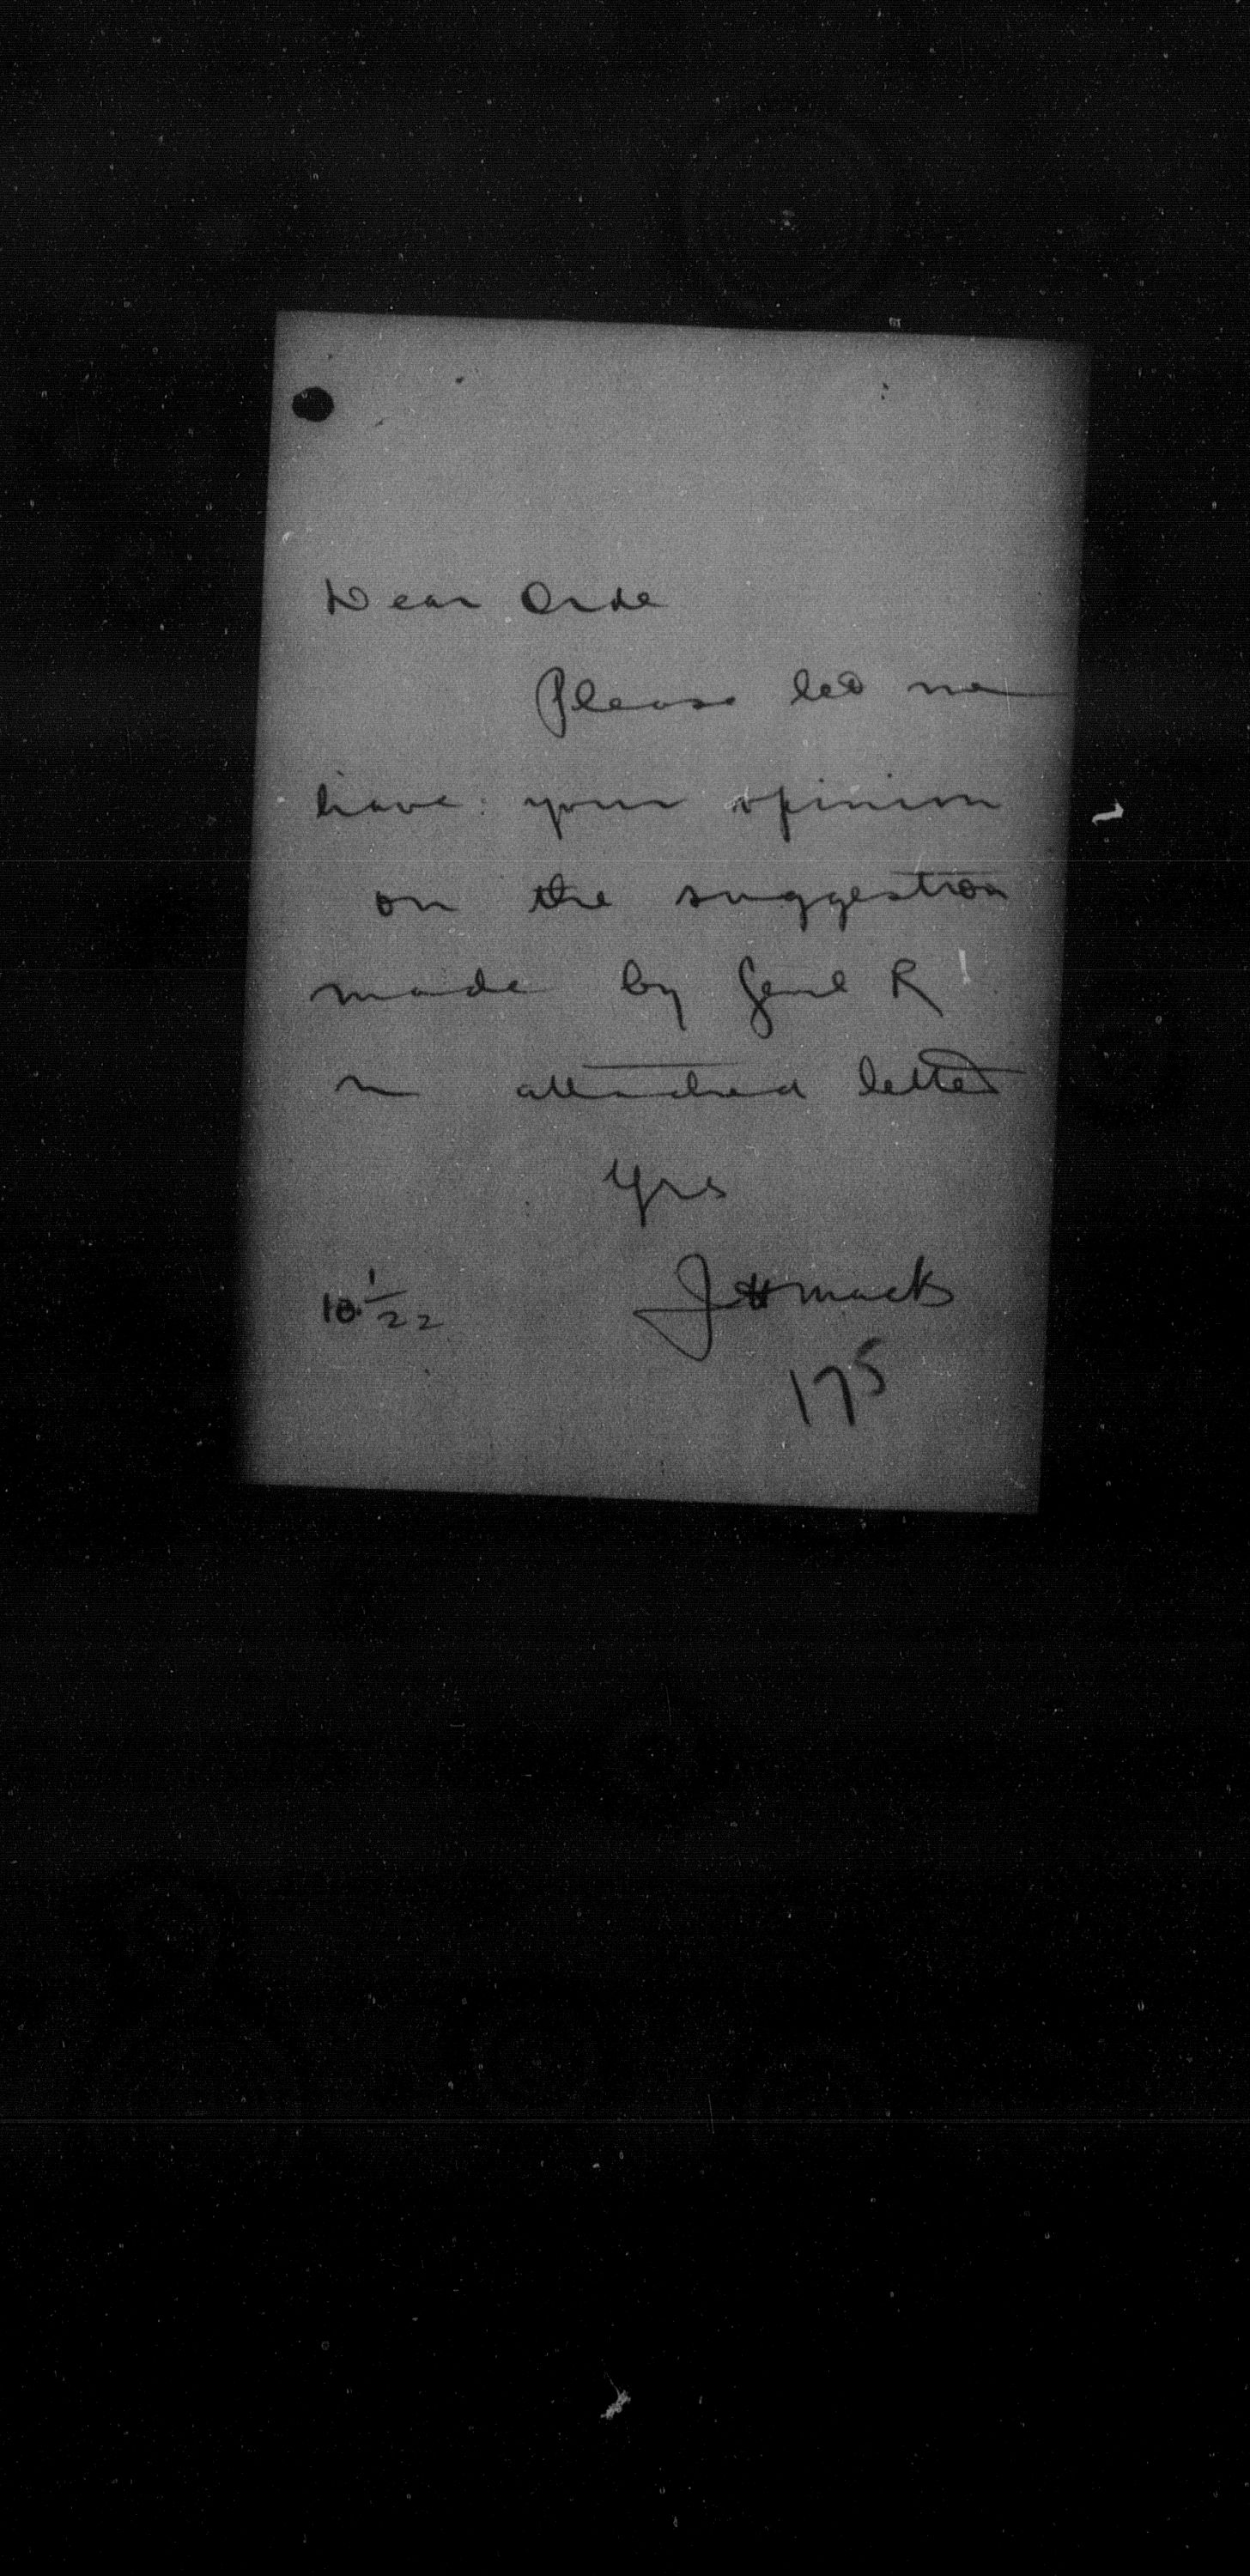 Dear Orde
Please let me
have your opinion
on the suggestion
made by Genl R
in attached letter
Yrs
JHMack
10 1/22
175